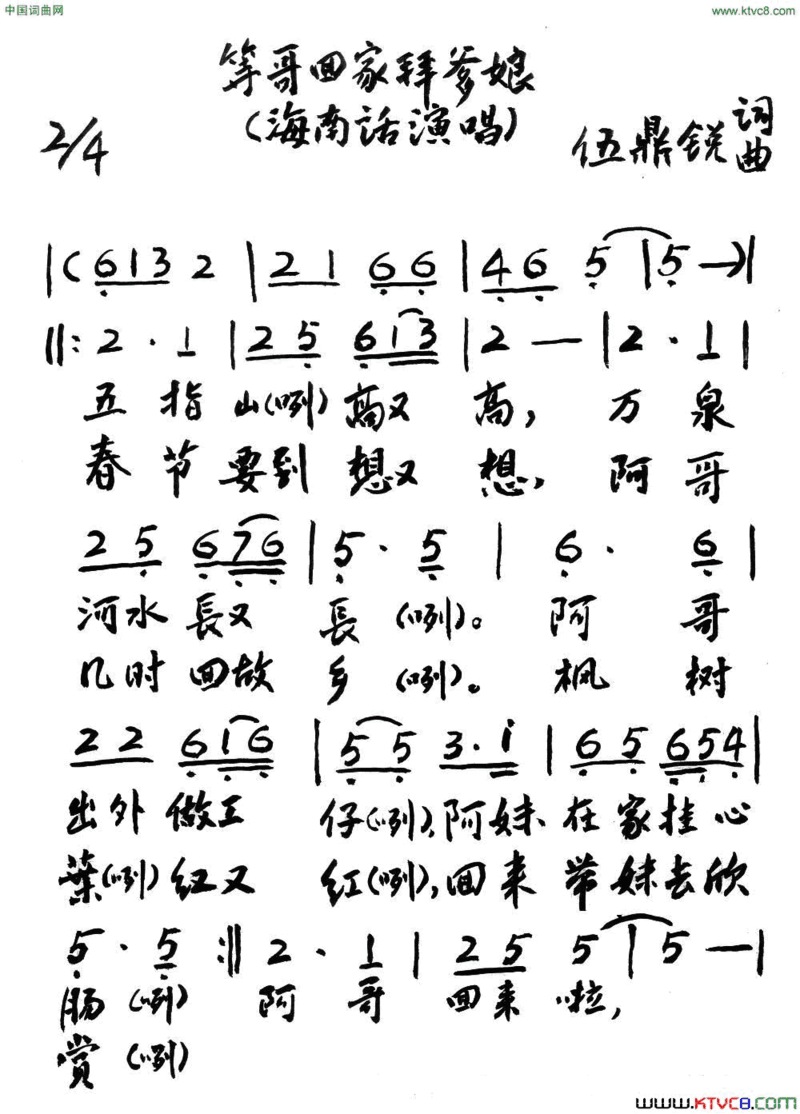 中国词曲网
www.ktvc8.com
等哥回家拜爹娘
(海南话演唱)
2/4
伍鼎锐 词曲
|(6 1 3 2 | 2 1 6 6 | 4 6 5 | 5 —)|
||: 2 · 1 | 2 5 6 1 3 | 2 — | 2 · 1 |
五指山(咧)高又高,万泉
春节要到想又想,阿哥
2 5 6 7 6 | 5 · 5 | 6 · 6 |
河水長又長(咧)。阿哥
几时回故乡(咧)。枫树
2 2 6 1 6 | 5 5 3 · 1 | 6 5 6 5 4 |
出外做工仔(咧),阿妹在家挂心
葉(咧)红又红(咧),回来带妹去欣
5 · 5 :|| 2 · 1 | 2 5 5 | 5 — |
肠(咧)阿哥回来啦,
赏(咧)
WWW.KTVC8.COM